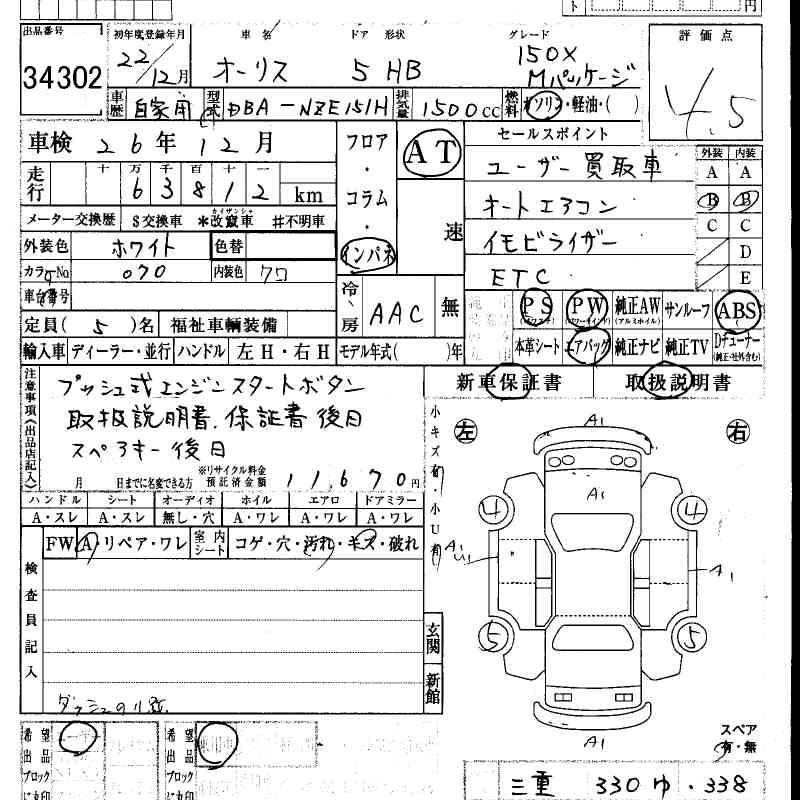 ト 円
出品番号 初年度登録年月 車名 ドア形状 グレード 評価点
34302 22/12月 オーリス 5 HB 150X Mパッケージ 4.5
車歴 自家用 型式 DBA-NZE151H 排気量 1500cc 燃料 ガソリン・軽油・( )
車検 26年12月 フロア・コラム・インパネ AT 速 セールスポイント
走行 十 万 千 百 十 一
6 3 8 1 2 km
ユーザー買取車
オートエアコン
イモビライザー
ETC
外装 内装
A A
B B
C C
D
E
メーター交換歴 $交換車 *改竄車 カイザンシャ #不明車
外装色 ホワイト 色替
カラーNo 070 内装色 クロ
車台番号
冷・房 AAC 無
PS PW 純正AW (アルミホイル) サンルーフ ABS
定員( 5 )名 福祉車輌装備
本革シート エアバッグ 純正ナビ 純正TV Dチューナー (純正・社外含む)
輸入車 ディーラー・並行 ハンドル 左H・右H モデル年式( )年
新車保証書 取扱説明書
注意事項(出品店記入)
プッシュ式エンジンスタートボタン
取扱説明書、保証書後日
スペアキー後日
月 日までに名変できる方 ※リサイクル料金預託済金額 11,670円
小キズ有・小U有
ハンドル シート オーディオ ホイル エアロ ドアミラー
A・スレ A・スレ 無し・穴 A・ワレ A・ワレ A・ワレ
FW A・リペア・ワレ 室内シート コゲ・穴・汚れ・キズ・破れ
検査員記入
玄関
新館
左 右
A1
A1
4 4
A1
5 5
A1
スペア
有・無
希望出品ブロック
希望出品ブロック
三重 330 ゆ・338